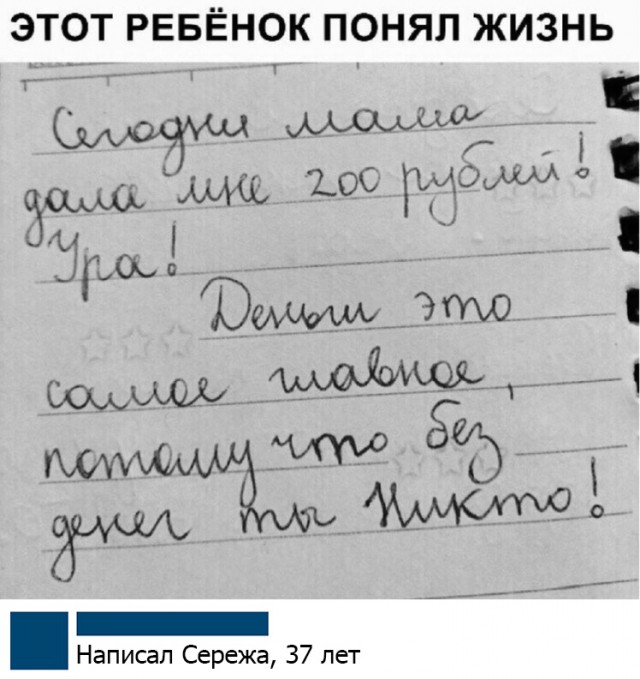 ЭТОТ РЕБЁНОК ПОНЯЛ ЖИЗНЬ
Сегодня мама
дала мне 200 рублей!
Ура!
Деньги это
самое главное,
потому что без
денег ты Никто!
Написал Сережа, 37 лет